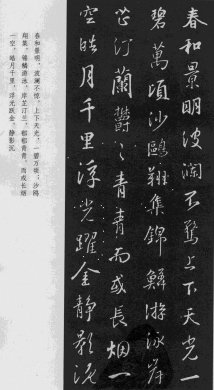 春和景明波瀾不驚上下天光一
碧萬頃沙鷗翔集錦鱗游泳岸
芷汀蘭鬱〻青青而或長烟一
空皓月千里浮光躍金静影沉
春和景明,波澜不惊,上下天光,一碧万顷;沙鸥
翔集,锦鳞游泳,岸芷汀兰,郁郁青青。而或长烟
一空,皓月千里,浮光跃金,静影沉